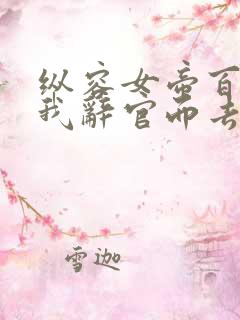 纵容女帝百
我辞官而去
雪迦